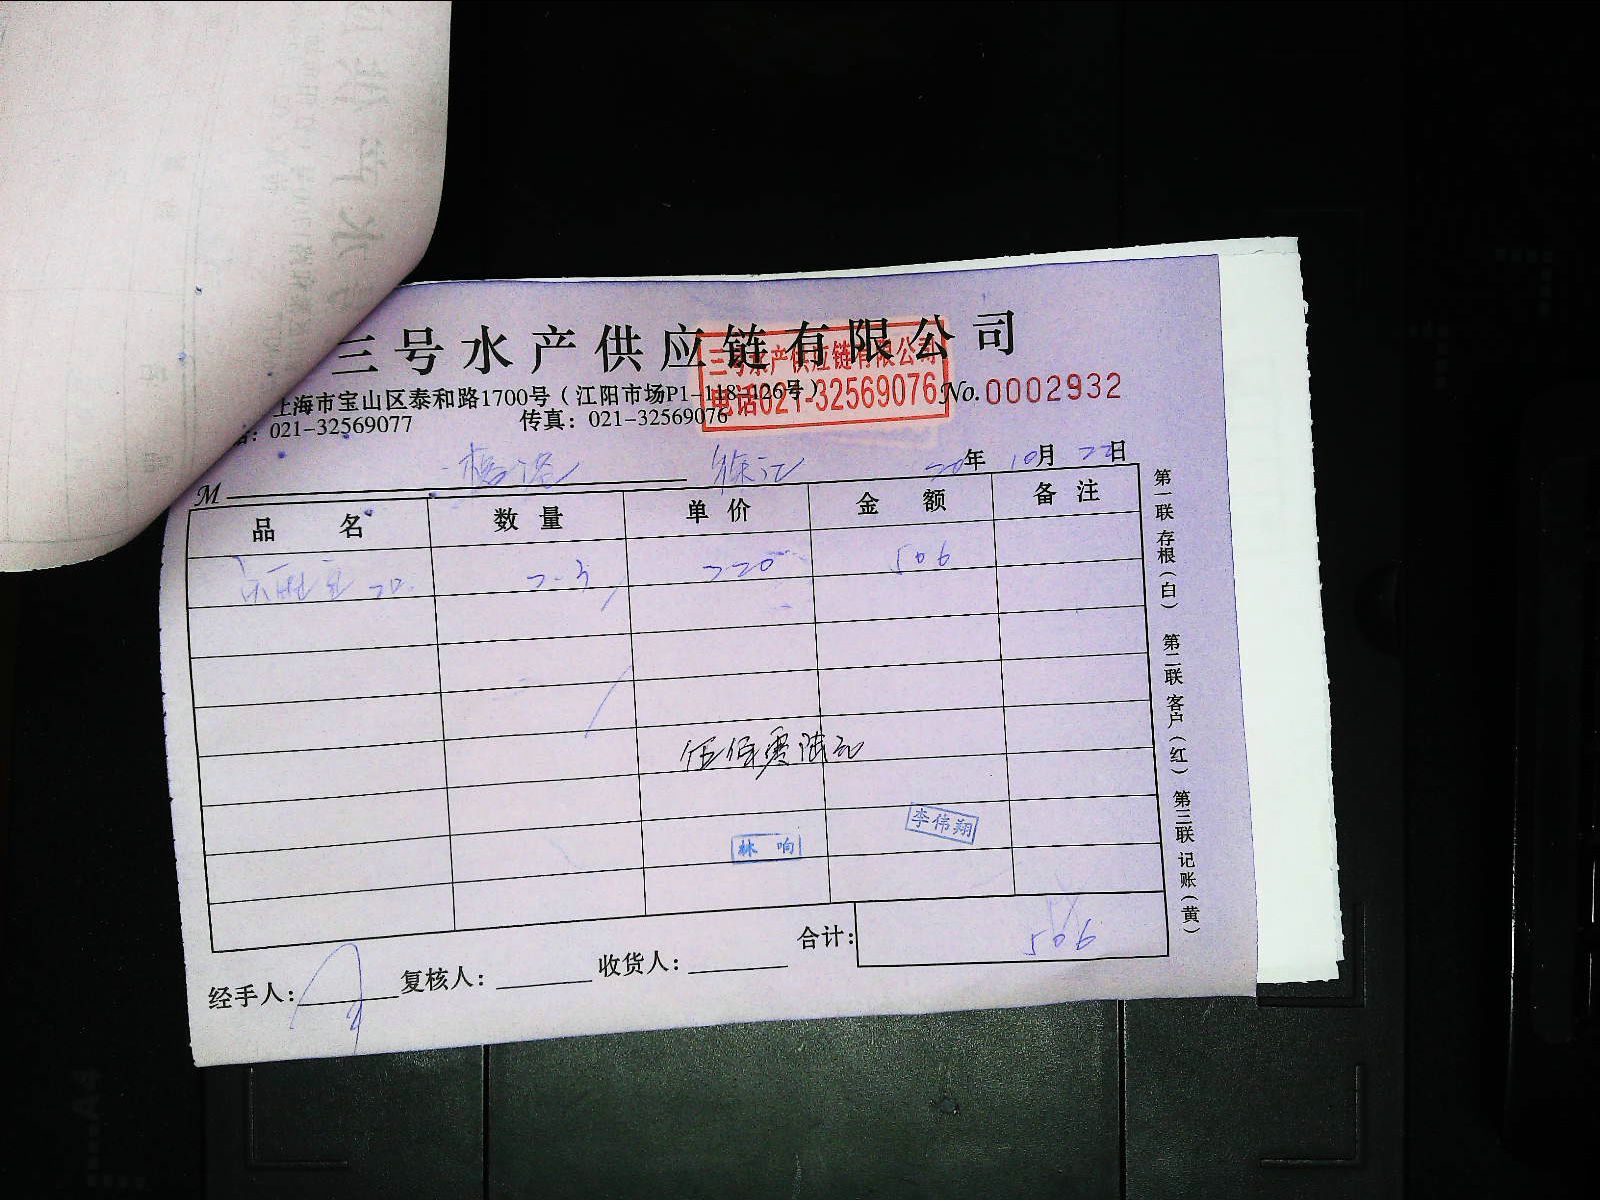 三号水产供应链有限公司
三号水产供应链有限公司
电话021-32569076
上海市宝山区泰和路1700号（江阳市场P1-118-126号）
No.0002932
021-32569077 传真：021-32569076
M 徐汇 20年 10月 22日
品名 数量 单价 金额 备注
20. 2.3 220 506
伍佰零陆元
林响 李伟翔
合计： 506
经手人： 复核人： 收货人：
第一联 存根（白） 第二联 客户（红） 第三联 记账（黄）